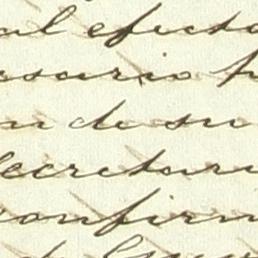 al efecto
rsario p
n de su
Secretari
confirm